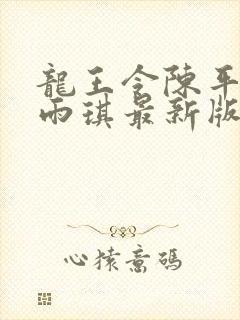 龍王令陳平
雨琪最新版
心猿意碼